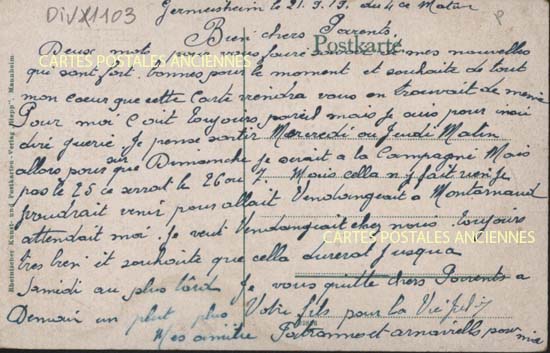 DivX1103
Germersheim le 21.9.19. du 4 ce Matin
Bien chers Parents
Postkarte
Deux mots pour vous faire savoir de mes nouvelles
qui sont fort bonnes pour le moment et souhaite de tout
mon coeur que cette Carte viendra vous en trouvait de meme
Pour moi c'est toujours pareil mais je suis pour
diré guerie. Je pense Mercredi ou Jeudi Matin
allors pour que sur Dimanche je serait a la Campagne Mais
pas le 25 ce serrat le 26 ou 7. Mais cella n'y fait rien Je
voudrait venir pour allait Vendangeait a Montarnaud
attendait moi. Je veut Vendangeait chez nous toujours
tres bien et souhaite que cella durerat Jusqua
Samedi au plus tard Je vous quitte chers Parents a
Demain un plut plus Votre fils pour la Vie
Mes amitie Patronnes et pour moi
CARTES POSTALES ANCIENNES
CARTES POSTALES ANCIENNES
Rheinischer Kunst- und Postkarten-Verlag "Hepp", Mannheim